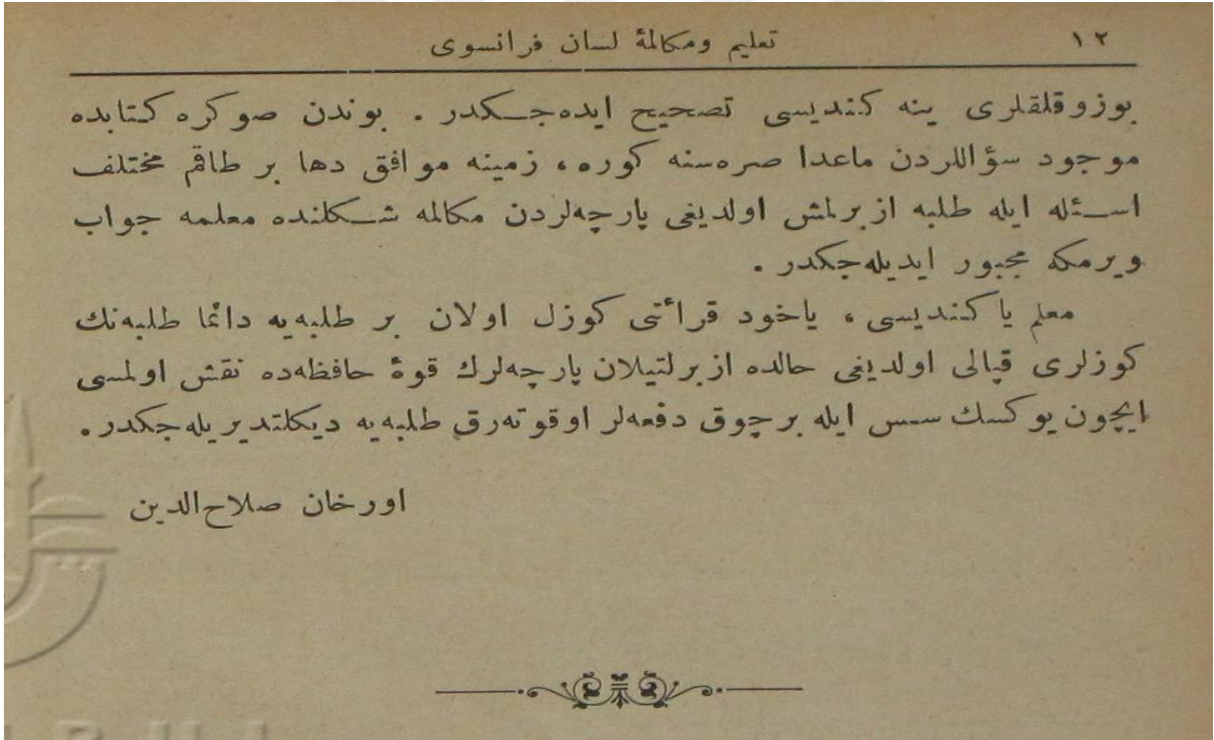 ١٢
تعليم ومكالمۀ لسان فرانسوى
بوزوقلقلرى ينه كنديسى تصحيح ايده‌جـكدر . بوندن صوكره كتابده
موجود سؤاللردن ماعدا صره‌سنه كوره ، زمينه موافق دها بر طاقم مختلف
اسـئله ايله طلبه ازبرلمش اولديغى پارچه‌لردن مكالمه شـكلنده معلمه جواب
ويرمكه مجبور ايديله‌جكدر .
معلم يا كنديسى ، ياخود قرائتى كوزل اولان بر طلبه‌يه دائما طلبه‌نك
كوزلرى قپالى اولديغى حالده ازبرلتيلان پارچه‌لرك قوۀ حافظه‌ده نقش اولمسى
ايچون يوكسك سس ايله برچوق دفعه‌لر اوقوته‌رق طلبه‌يه ديكلتديريله‌جكدر .
اورخان صلاح‌الدين